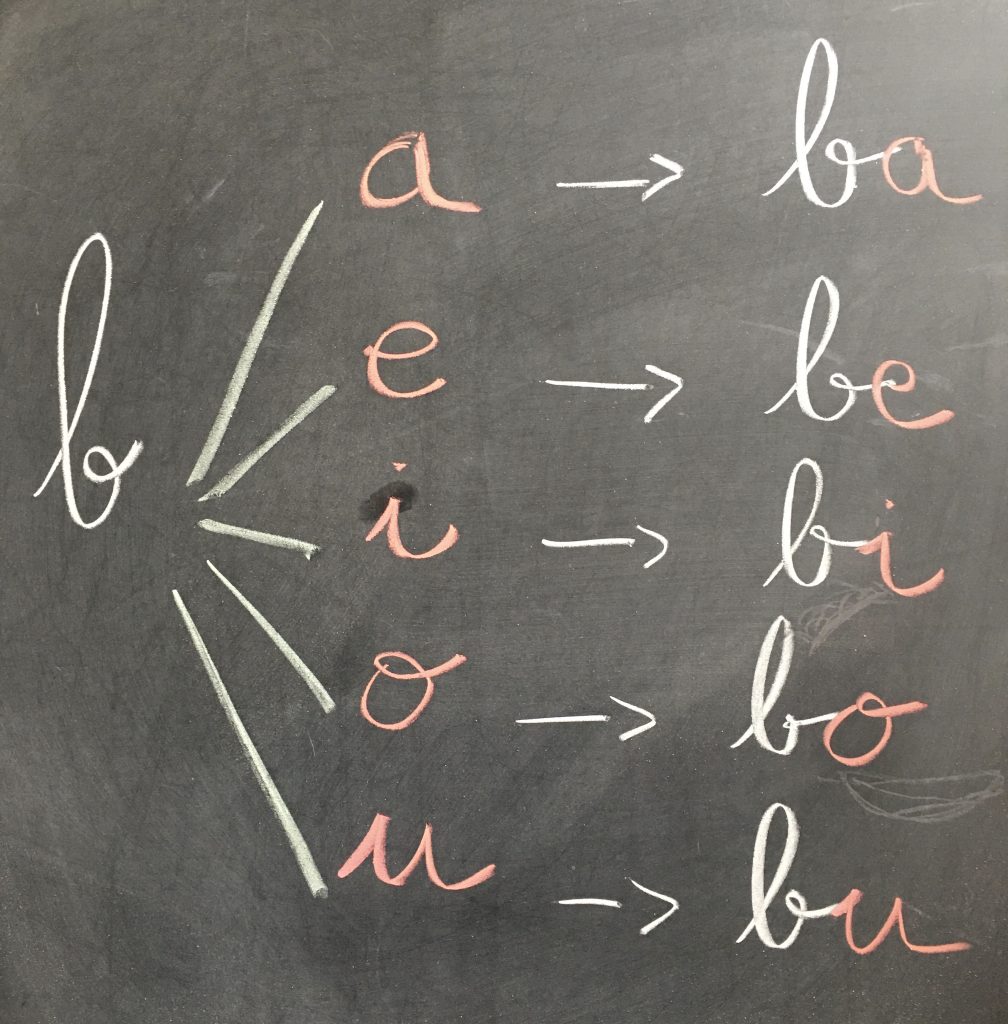 a → ba
e → be
b
i → bi
o → bo
u → bu